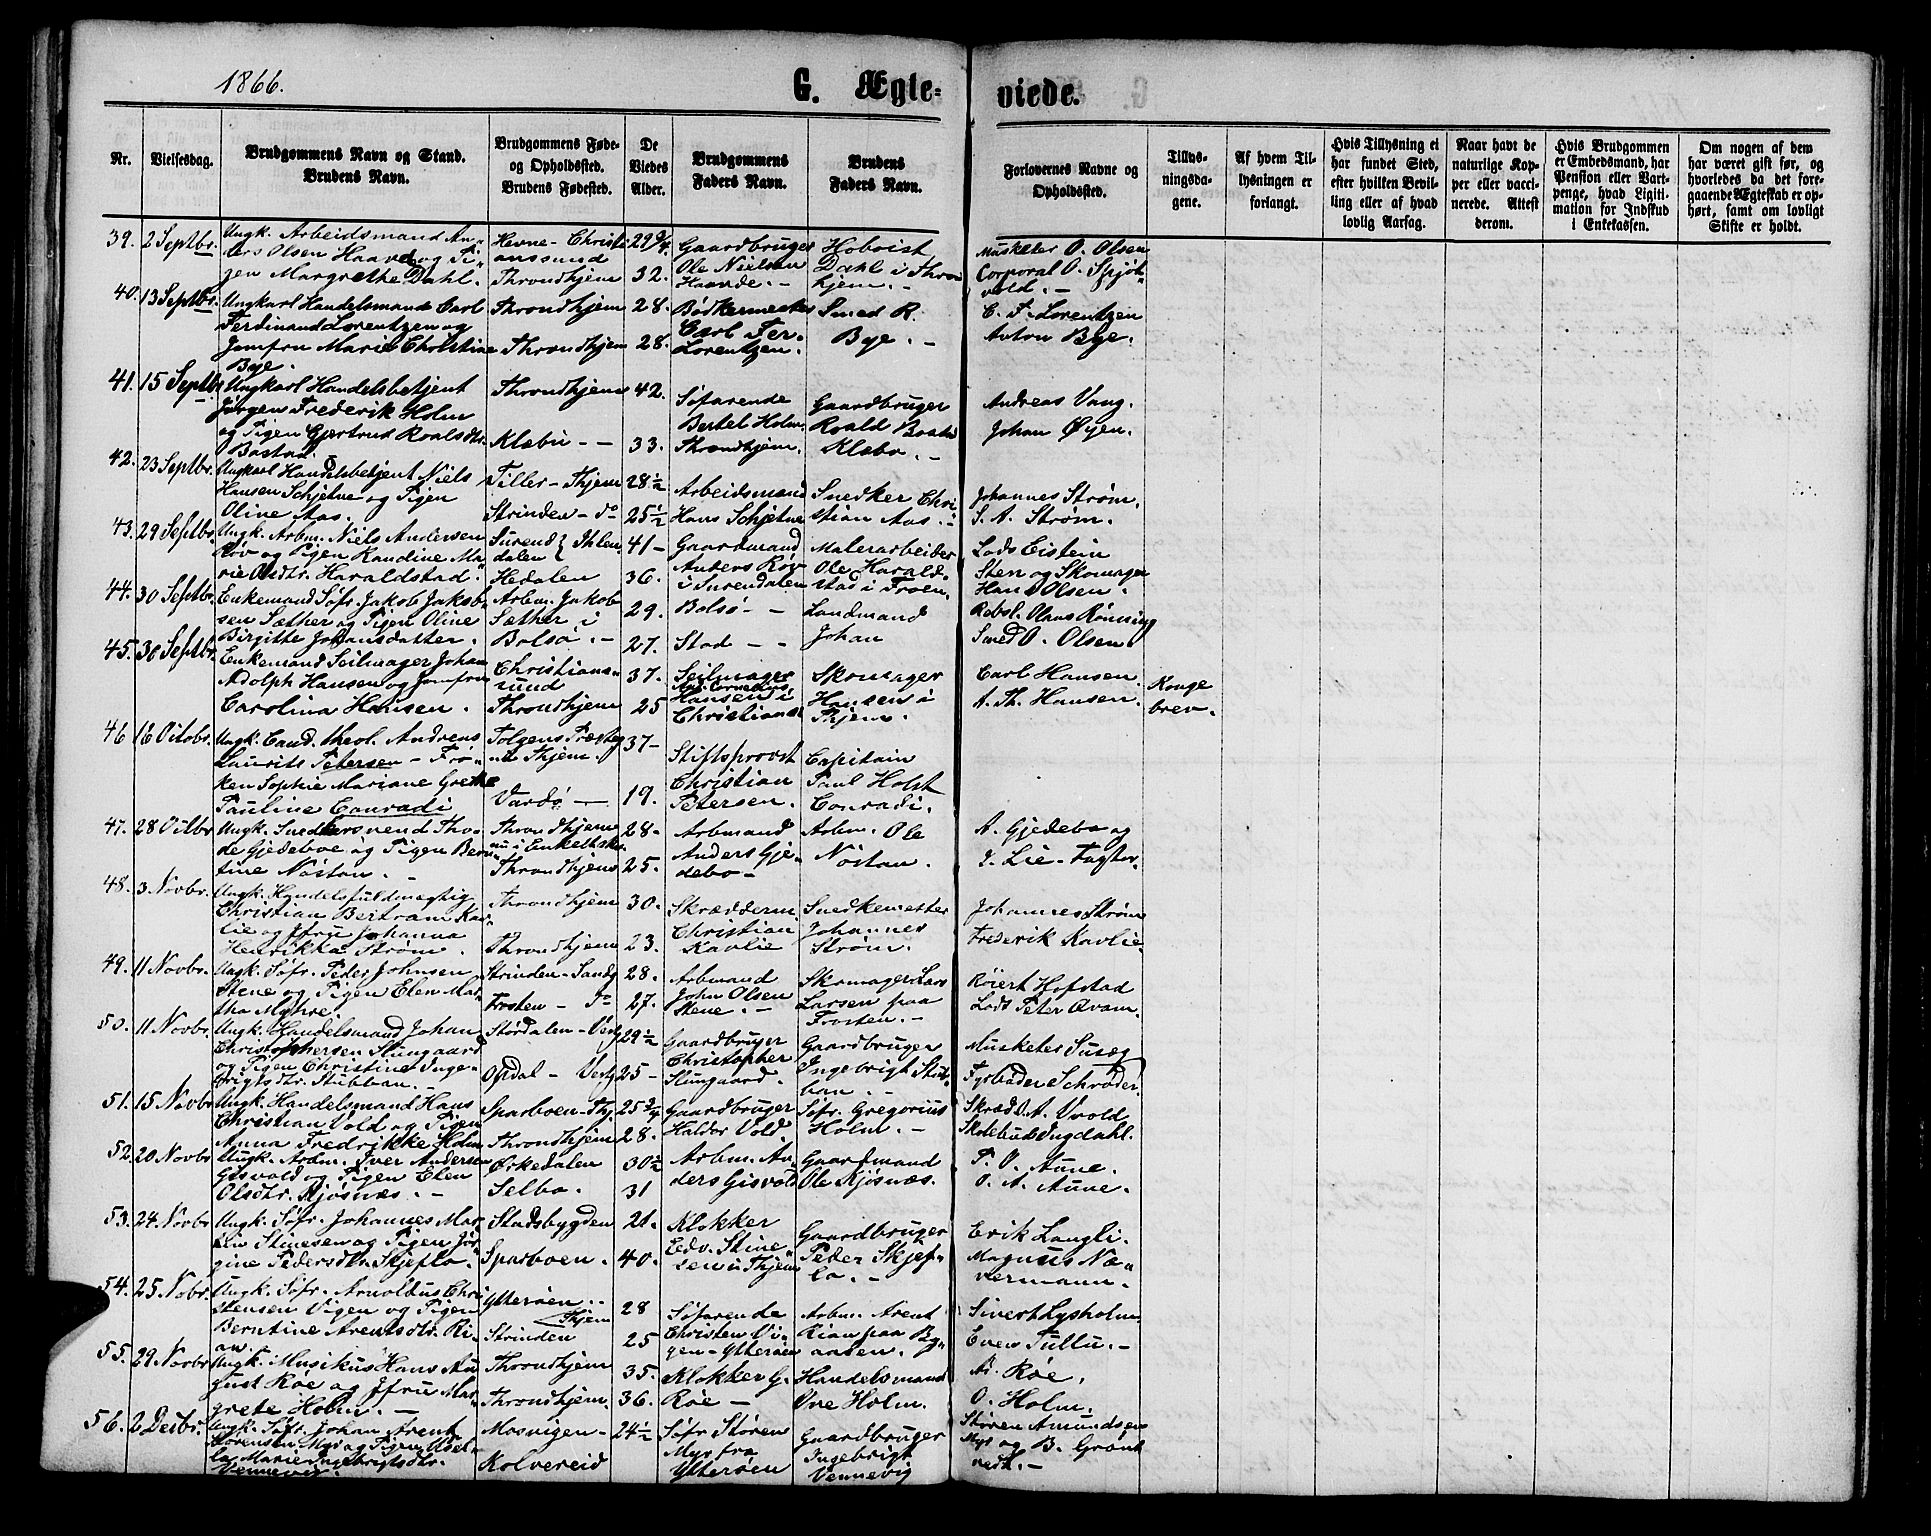 1866.
G. Ægte-
viede.
Nr.
Vielsesdag.
Brudgommens Navn og Stand.
Brudens Navn.
Brudgommens Føde-
og Opholdssted.
Brudens Fødested.
De
Viedes
Alder.
Brudgommens
Faders Navn.
Brudens
Faders Navn.
Forlovernes Navne og
Opholdssted.
Tillys-
ningsda-
gene.
Af hvem Til-
lysningen er
forlangt.
Hvis Tillysning ei
har fundet Sted,
efter hvilken Bevil-
ling eller af hvad
lovlig Aarsag.
Naar havt de
naturlige Kop-
per eller vacci-
nerede. Attest
derom.
Hvis Brudgommen
er Embedsmand, har
Pension eller Vart-
penge, hvad Ligiti-
mation for Indskud
i Enkekassen.
Om nogen af dem
har været gift før, og
hvorledes da det fore-
gaaende Ægteskab er op-
hørt, samt om lovligt
Skifte er holdt.
39. 2 Septbr.
Ungk. Arbeidsmand An-
ders Olsen Haarde og Pi-
gen Margrethe Dahl.
Hevne - Christi-
anssund
Throndhjem
29 3/4
32.
Gaardbruger
Ole Nielsen
Haarde. -
Hoboist
Dahl i Thron
hjem. -
Musketer O. Olsen
Corporal O. Spjøt-
vold. -
40. 13 Septbr.
Ungkarl Handelsmand Carl
Ferdinand Lorentzen og
Jomfru Marie Christine
Bye.
Throndhjem
Throndhjem
28.
28.
Bødkermester
Carl Fer.
Lorentzen.
Smed R.
Bye. -
C. F. Lorentzen
Anton Bye.
41. 15 Septbr.
Ungkarl Handelsbetjent
Jørgen Frederik Holm
og Pigen Gjertrud Roalsdtr.
Bostad.
Throndhjem
Klæbu - -
42.
33.
Søfarende
Bertel Holm.
Throndhjem.
Gaardbruger
Roald Bostad
Klæbo. -
Andreas Vang.
Johan Øyen.
42. 23 Septbr.
Ungkarl Handelsbetjent Niels
Hansen Schjetne og Pigen
Oline Aas.
Tiller - Thjem
Strinden - do
28 1/2
25 1/2
Arbeidsmand
Hans Schjetne
Snedker Chri-
stian Aas. -
Johannes Strøm.
S. A. Strøm.
43. 29 Septbr.
Ungk. Arbm. Niels Andersen
Røv og Pigen Randine Ma-
rie Olsdtr. Haraldstad.
Surend } Ihlen
dalen
Hedalen
41 -
36.
Gaardmand
Anders Røv
i Surendalen
Malerarbeider
Ole Harald-
stad i Froen.
Lods Eistein
Sten og Skomager
Hans Olsen.
44. 30 Septbr.
Enkemand Søfr. Jakob Jakob-
sen Sæther og Pigen Oline
Birgitte Johansdatter.
Arbm. Jakob
Sæther i
Bolsø. -
29.
27.
Bolsø - -
Stad - -
Landmand
Johan
Rebsl. Olaus Rønning
Smed O. Olsen
45. 30 Septbr.
Enkemand Seilmager Johan
Adolph Hansen og Jomfru
Carolina Hansen.
Christians-
sund
Throndhjem
37.
25
Seilmager
Hansen i
Christians
Skomager
Hansen i
Thjem.
Carl Hansen.
A. Th. Hansen.
Konge
brev.
46 16 Octobr.
Ungk. Cand. theol. Andreas
Laurits Petersen - Frø-
ken Sophie Mariane Grethe
Pauline Conradi
Tolgens Præsteg
nu Thjem.
Vardø -
37 -
19.
Stiftsprovst
Christian
Petersen.
Capitain
Paul Holst
Conradi.
47. 28 Octbr
Ungk. Snedkersvend Tho-
de Gjedeboe og Pigen Bern-
tine Nøstan. -
Throndhjem
Throndhjem
28 -
25.
Arbmand
Anders Gje-
debo -
Arbm. Ole
Nøstan.
A. Gjedebo og
J. Lie - Fagtor.
48. 3. Novbr.
Ungk. Handelsfuldmægtig
Christian Bertram Kav-
lie og Jfru Johanna
Henrikka Strøm.
Throndhjem
Throndhjem
30.
23.
Skrædderm.
Christian
Kavlie
Snedkemester
Johannes
Strøm.
Johannes Strøm
Frederik Kavlie
49. 11 Novbr.
Ungk. Søfr. Peder Johnsen
Stene og Pigen Elen Mar-
tha Myhre.
Strinden - Sandg
Frosten - do
28.
27.
Arbmand
John Olsen
Stene. -
Skomager Lars
Larsen paa
Frosten. -
Røiert Hofstad
Lods Peter Qvam.
50. 11 Novbr.
Ungk. Handelsmand Johan
Christophersen Slungaard
og Pigen Christine Inge-
brigtsdtr. Stubban. -
Størdalen - Vestg
Opdal - Vestg
29 1/2
25 -
Gaardbruger
Christopher
Slungaard.
Gaardbruger
Ingebrigt Stub-
ban. -
Musketer Susæg
Fyrbøder Schrøder
51. 15 Novbr
Ungk. Handelsmand Hans
Christian Vold og Pigen
Anna Fredrikke Holm
Sparboen - Thj.
Throndhjem
25 3/4
28.
Gaardbruger
Haldor Vold.
Søfr. Gregorius
Holm. -
Skræd A. Uvold
Skolebud Ingdahl.
52. 20 Novbr
Ungk. Arbm. Iver Andersen
Gisvold og Pigen Elen
Olsdtr. Kjøsnæs. -
Ørkedalen
Selbo.
30 1/2
31
Arbm. An-
ders Gisvold
Gaardmand
Ole Kjøsnæs.
P. O. Aune.
O. A. Aune.
53. 24. Novbr
Ungk. Søfr. Johannes Mar-
tin Stinesen og Pigen Jør-
gine Pedersdtr. Skjeflo.
Stadsbygden
Sparboen.
21.
40.
Klokker
Edv. Stine-
sen i Thjem
Gaardbruger
Peder Skjef-
lo. -
Erik Langli.
Magnus Næ-
vermann.
54. 25. Nobr.
Ungk. Søfr. Arnoldus Chri-
stensen Vigen og Pigen
Berntine Arentsdtr. Ri-
an.
Ytterøen. -
Thjem
Strinden
28
25
Søfarende
Christen Vi-
gen - Ytterøen
Arbm. Arent
Rian paa By-
aasen.
Sivert Lysholm
Even Tullu. -
55. 29. Novbr
Ungk. Musikus Hans Au-
gust Røe og Jfru Mar-
grete Holm. -
Throndhjem
Throndhjem.
35.
36.
Klokker G.
Røe -
Handelsmand
Ove Holm.
A. Røe.
O. Holm.
56. 2 Decbr.
Ungk. Søfr. Johan Arent
Størensen Myr og Pigen
Marie Ingebrigtsdtr.
Vennevig.
Mosvigen -
Kolvereid
24 1/2
Søfr Støren
Myr fra
Ytterøen
Gaardbruger
Ingebrigt
Vennevig
Støren Amundsen
Myr og B. Grønt
vedt. -